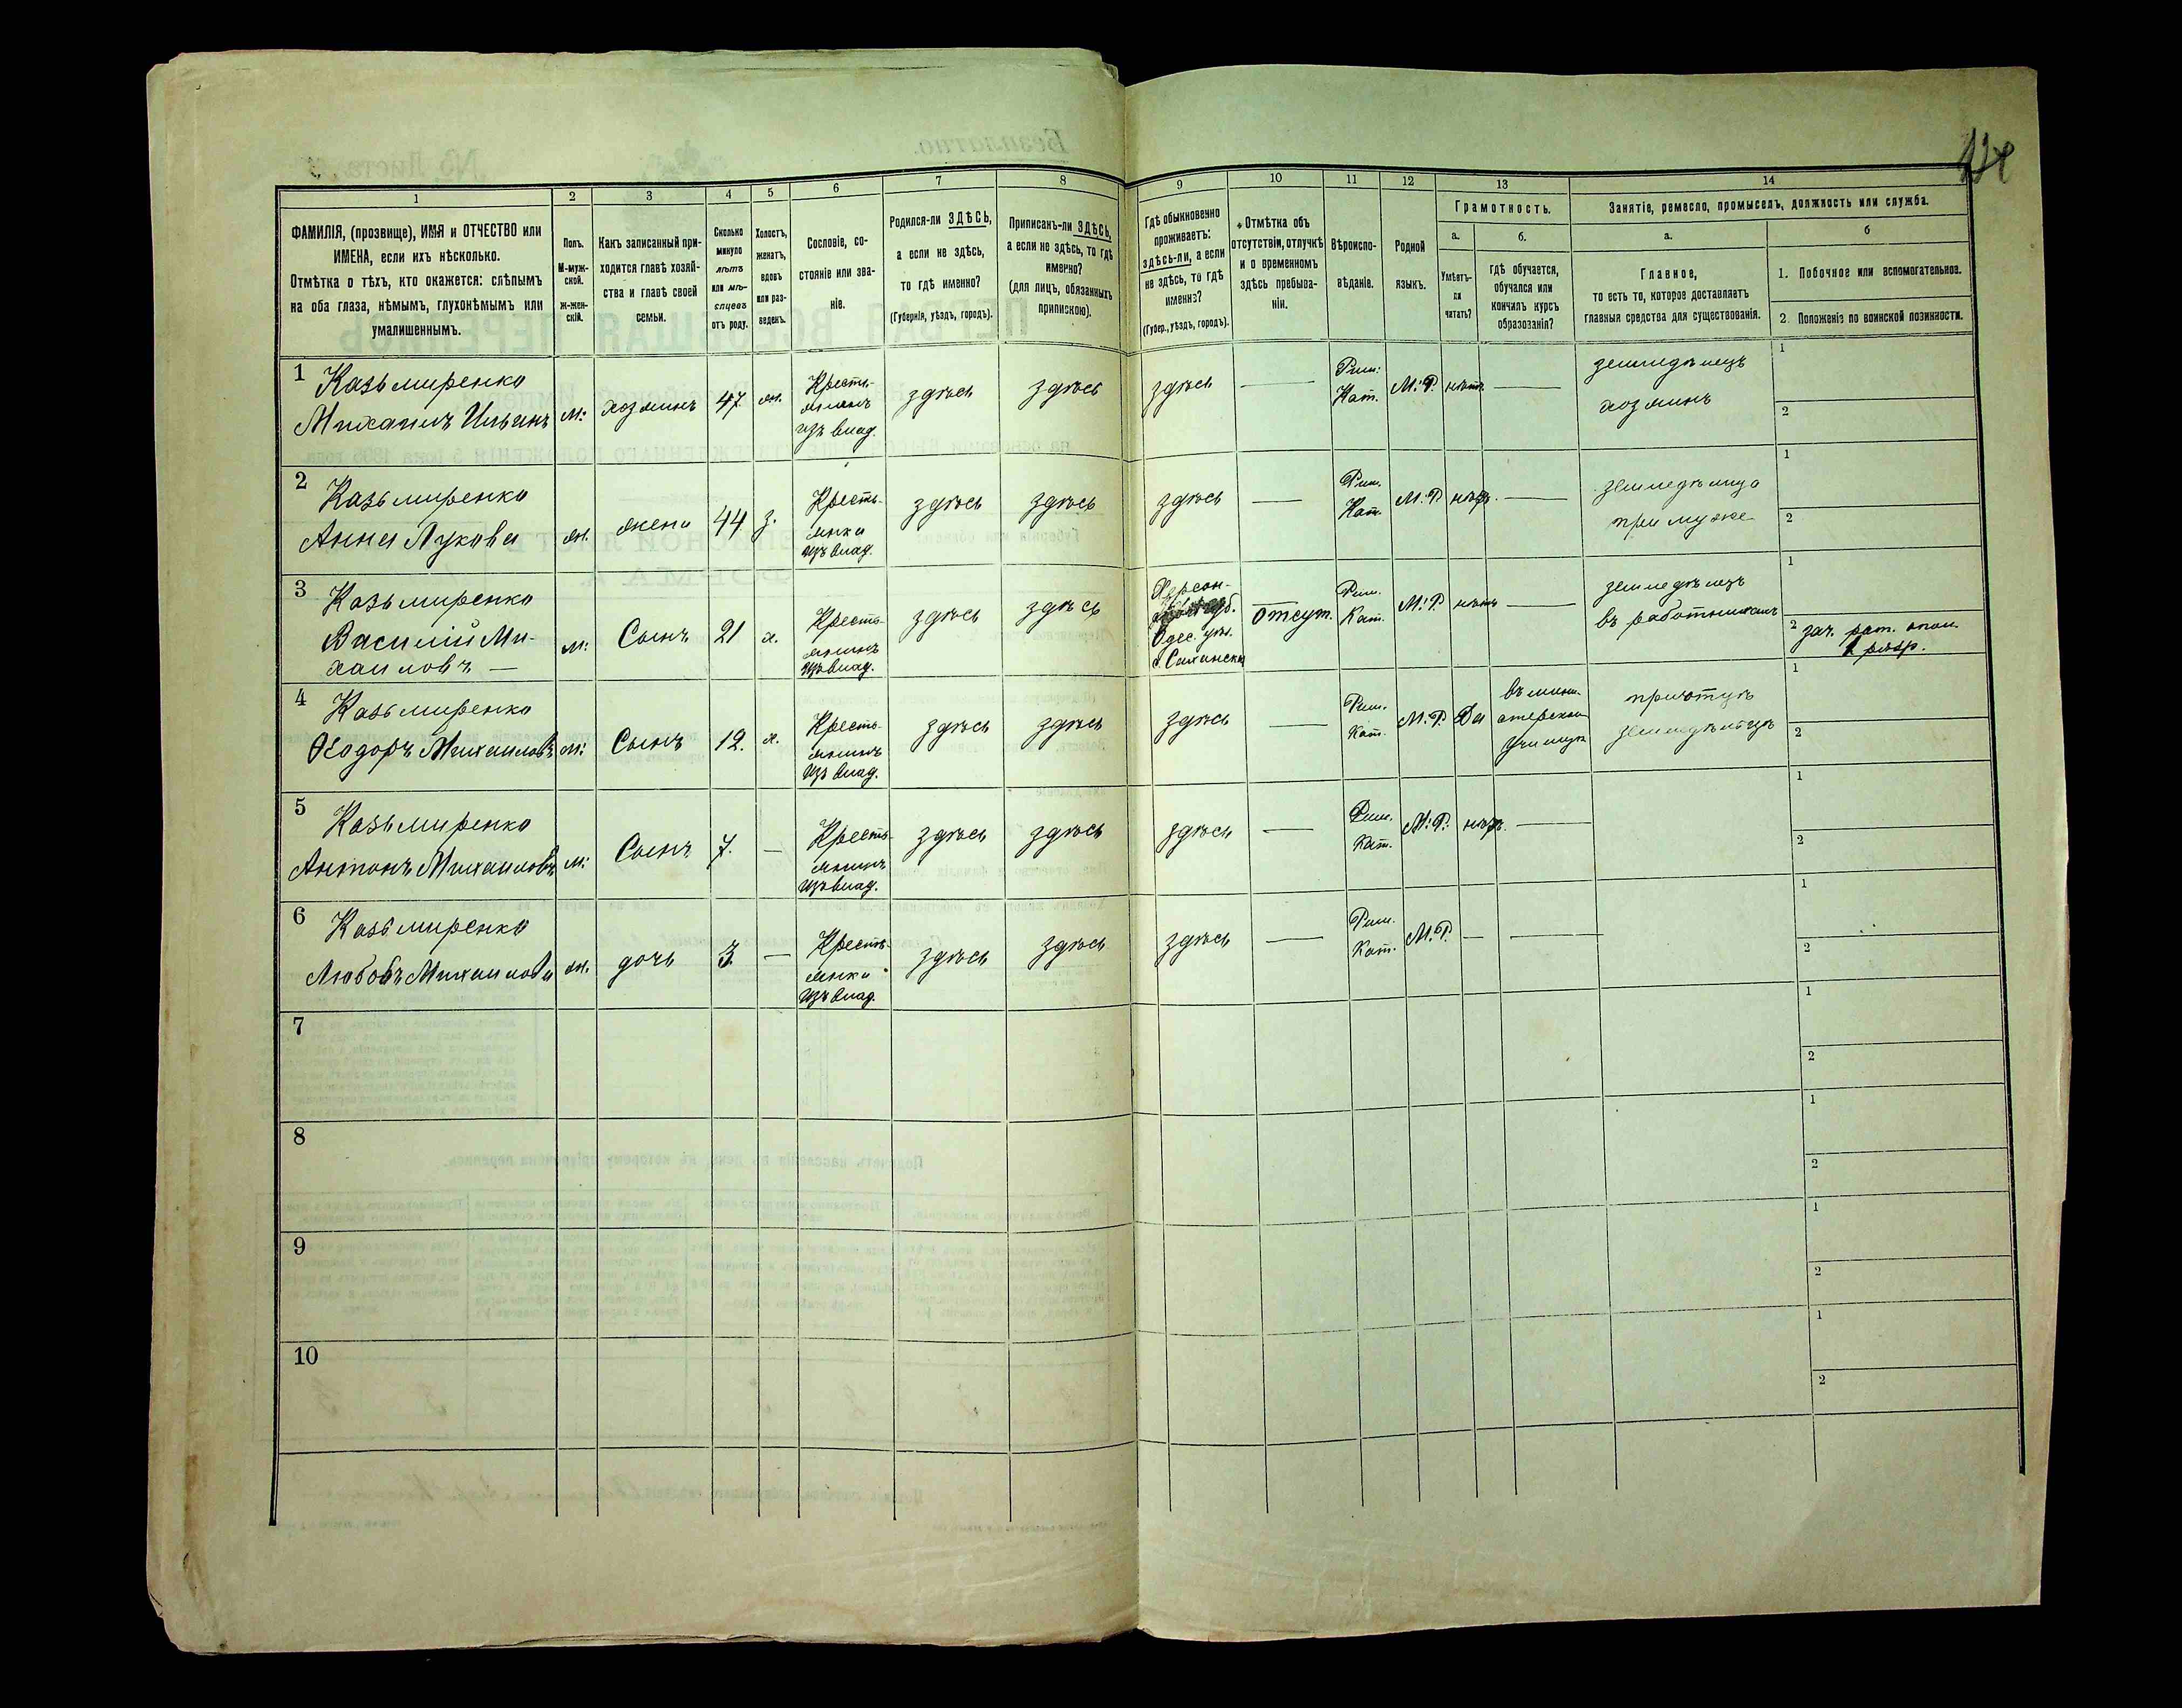 1
2
3
4
5
6
7
8
9
10
11
12
13
14
ФАМИЛІЯ, (прозвище), ИМЯ и ОТЧЕСТВО или
ИМЕНА, если ихъ нѣсколько.
Отмѣтка о тѣхъ, кто окажется: слѣпымъ
на оба глаза, нѣмымъ, глухонѣмымъ или
умалишеннымъ.
Полъ.
М-муж-
ской.
ж-жен-
скій.
Какъ записанный при-
ходится главѣ хозяй-
ства и главѣ своей
семьи.
Сколько
минуло
лѣтъ
или мѣ-
сяцевъ
отъ роду.
Холостъ,
женатъ,
вдовъ
или раз-
веденъ.
Сословіе, со-
стояніе или зва-
ніе.
Родился-ли ЗДѢСЬ,
а если не здѣсь,
то гдѣ именно?
(Губернія, уѣздъ, городъ).
Приписанъ-ли ЗДѢСЬ,
а если не здѣсь, то гдѣ
именно?
(для лицъ, обязанныхъ
припискою).
Гдѣ обыкновенно
проживаетъ:
здѣсь-ли, а если
не здѣсь, то гдѣ
именно?
(Губер., уѣздъ, городъ).
Отмѣтка объ
отсутствіи, отлучкѣ
и о временномъ
здѣсь пребыва-
ніи.
Вѣроиспо-
вѣданіе.
Родной
языкъ.
Грамотность.
а.
б.
Умѣетъ-
ли
читать?
гдѣ обучается,
обучался или
кончилъ курсъ
образованія?
Занятіе, ремесло, промыселъ, должность или служба.
а.
б
Главное,
то есть то, которое доставляетъ
главныя средства для существованія.
1. Побочное или вспомогательное.
2. Положеніе по воинской повинности.
1
Казьмиренко
Михаилъ Ильинъ
м.
хозяинъ
47
ж.
Кресть-
янинъ
изъ влад.
здѣсь
здѣсь
здѣсь
—
Рим.
Кат.
М.Р.
нѣтъ
—
земледѣлецъ
хозяинъ
1
2
2
Казьмиренко
Анна Лукова
ж.
жена
44
з.
Кресть-
янка
изъ влад.
здѣсь
здѣсь
здѣсь
—
Рим.
Кат.
М.Р.
нѣтъ.
—
земледѣлица
при муже
1
2
3
Казьмиренко
Василій Ми-
хаиловъ —
м.
Сынъ
21
х.
Кресть-
янинъ
изъ влад.
здѣсь
здѣсь
Херсон-
губ.
Одес. уѣз.
отсут.
Рим.
Кат.
М.Р.
нѣтъ
—
земледѣлецъ
въ работникахъ
1
2 зач. рат. опол.
1 разр.
4
Казьмиренко
Ѳеодоръ Михаиловъ
м.
Сынъ
12.
х.
Кресть-
янинъ
изъ влад.
здѣсь
здѣсь
здѣсь
—
Рим.
Кат.
М.Р.
Да
въ мини-
стерском
училищѣ
при отцѣ
земледѣлецъ
1
2
5
Казьмиренко
Антонъ Михаиловъ
м.
Сынъ
7.
—
Кресть-
янинъ
изъ влад.
здѣсь
здѣсь
здѣсь
—
Рим.
Кат.
М.Р.
нѣтъ.
—
1
2
6
Казьмиренко
Любовь Михаилова
ж.
дочь
3
—
Кресть-
янка
изъ влад.
здѣсь
здѣсь
здѣсь
—
Рим.
Кат.
М.Р.
—
—
1
2
7
1
2
8
1
2
9
1
2
10
1
2